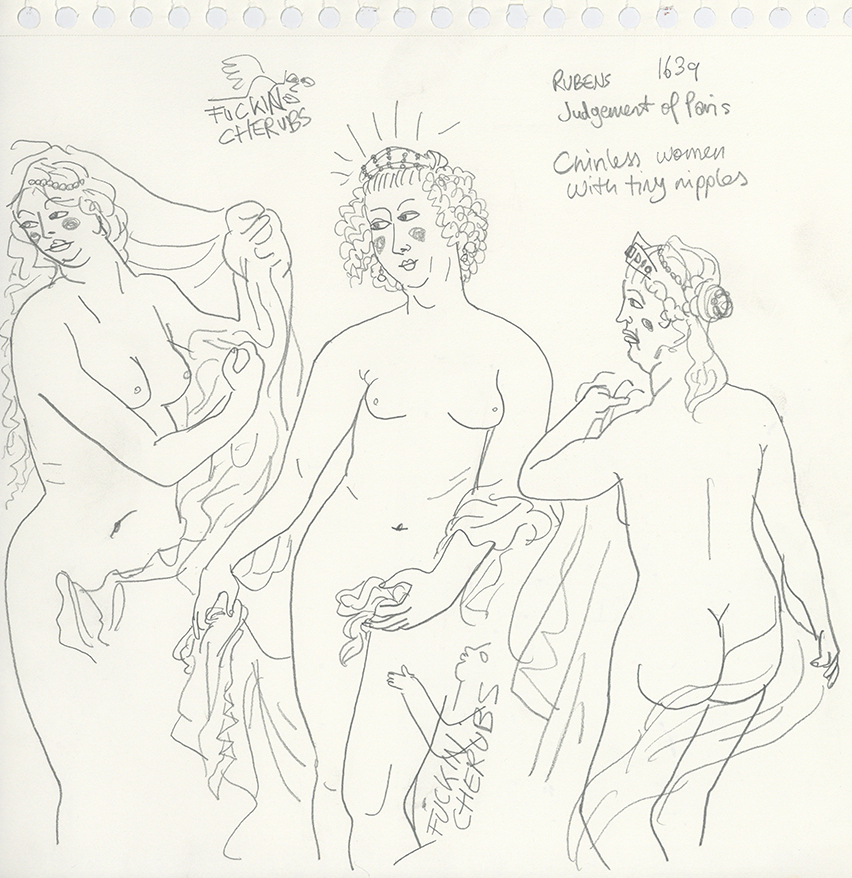 FUCKIN
CHERUBS
RUBENS 1639
Judgement of Paris
Chinless women
with tiny nipples
FUCKIN
CHERUBS